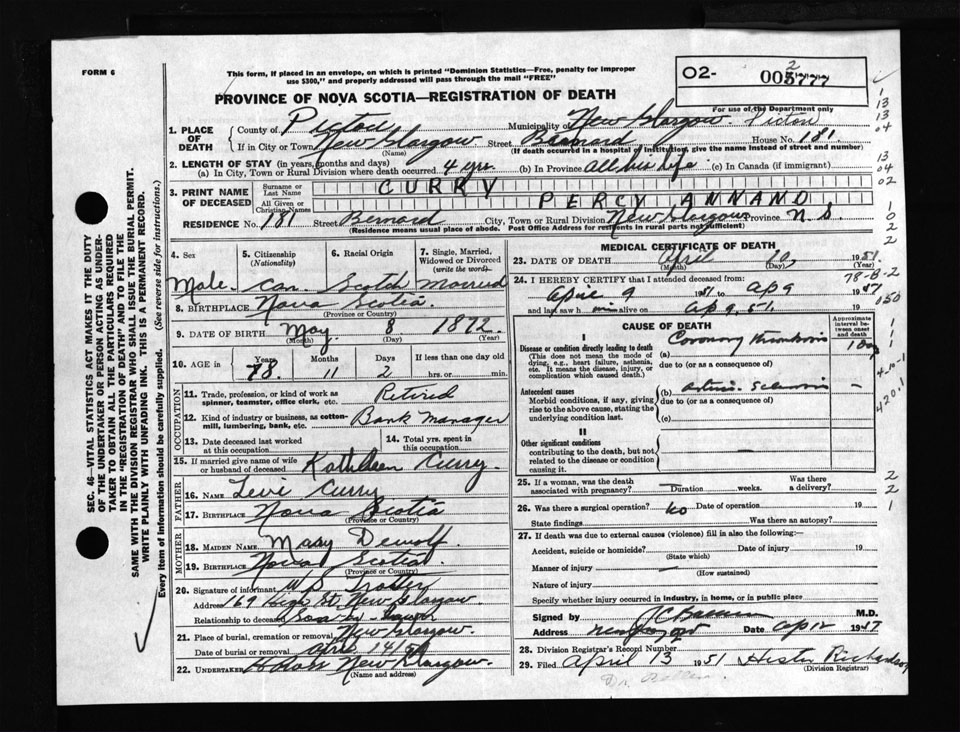 FORM 6
This form, if placed in an envelope, on which is printed "Dominion Statistics—Free, penalty for improper
use $300," and properly addressed will pass through the mail "FREE"
O2- 005777
2
PROVINCE OF NOVA SCOTIA—REGISTRATION OF DEATH
For use of the Department only
1. PLACE OF DEATH
County of Pictou Municipality of New Glasgow. Pictou
If in City or Town New Glasgow Street Bernard House No. 181
(Name) (If death occurred in a hospital or institution, give the name instead of street and number)
2. LENGTH OF STAY (in years, months and days)
(a) In City, Town or Rural Division where death occurred 4 yrs. (b) In Province All his life (c) In Canada (if immigrant)
3. PRINT NAME OF DECEASED
Surname or Last Name CURRY
All Given or Christian Names PERCY ANNAND
RESIDENCE No. 181 Street Bernard City, Town or Rural Division New Glasgow Province N. S.
(Residence means usual place of abode. Post Office Address for residents in rural parts not sufficient)
4. Sex
Male
5. Citizenship (Nationality)
Can.
6. Racial Origin
Scotch
7. Single, Married, Widowed or Divorced (write the word)
Married
8. BIRTHPLACE Nova Scotia
(Province or Country)
9. DATE OF BIRTH May 8 1872
(Month) (Day) (Year)
10. AGE in
Years Months Days If less than one day old
78. 11 2 hrs. or min.
OCCUPATION
11. Trade, profession, or kind of work as spinner, teamster, office clerk, etc. Retired
12. Kind of industry or business, as cotton-mill, lumbering, bank, etc. Bank Manager
13. Date deceased last worked at this occupation
14. Total yrs. spent in this occupation
15. If married give name of wife or husband of deceased Kathleen Curry.
FATHER
16. Name Levi Curry
17. Birthplace Nova Scotia
(Province or Country)
MOTHER
18. MAIDEN NAME Mary Dewolf.
19. BIRTHPLACE Nova Scotia
(Province or Country)
20. Signature of informant W P Trotter
Address 169 High St. New Glasgow.
Relationship to deceased Son in-law
21. Place of burial, cremation or removal New Glasgow.
Date of burial or removal 14/51
22. UNDERTAKER New Glasgow.
(Name and address)
MEDICAL CERTIFICATE OF DEATH
23. DATE OF DEATH April 10 1951
(Month) (Day)
24. I HEREBY CERTIFY that I attended deceased from:
April 9 1951 to ap 9
and last saw h im alive on ap 9, 51.
78-B-2
CAUSE OF DEATH
Approximate interval between onset and death
I
Disease or condition directly leading to death
(This does not mean the mode of dying, e.g., heart failure, asthenia, etc. It means the disease, injury, or complication which caused death.)
(a) Coronary thrombosis 1 Day
due to (or as a consequence of)
Antecedent causes
Morbid conditions, if any, giving rise to the above cause, stating the underlying condition last.
(b) Arterio. Sclerosis —
due to (or as a consequence of)
(c)
II
Other significant conditions contributing to the death, but not related to the disease or condition causing it.
25. If a woman, was the death associated with pregnancy? — Duration weeks. Was there a delivery?
26. Was there a surgical operation? No Date of operation 19
State findings Was there an autopsy?
27. If death was due to external causes (violence) fill in also the following:—
Accident, suicide or homicide? Date of injury 19
(State which)
Manner of injury —
(How sustained)
Nature of injury
Specify whether injury occurred in industry, in home, or in public place
Signed by M.D.
Address Date ap 12 19
28. Division Registrar's Record Number
29. Filed April 13 1951 Hester Richardson
(Division Registrar)
SEC. 46—VITAL STATISTICS ACT MAKES IT THE DUTY
OF THE UNDERTAKER OR PERSON ACTING AS UNDERTAKER
TO OBTAIN ALL THE PARTICULARS REQUIRED
IN THE "REGISTRATION OF DEATH" AND TO FILE THE
SAME WITH THE DIVISION REGISTRAR WHO SHALL ISSUE THE BURIAL PERMIT.
WRITE PLAINLY WITH UNFADING INK. THIS IS A PERMANENT RECORD.
Every item of information should be carefully supplied. (See reverse side for instructions.)